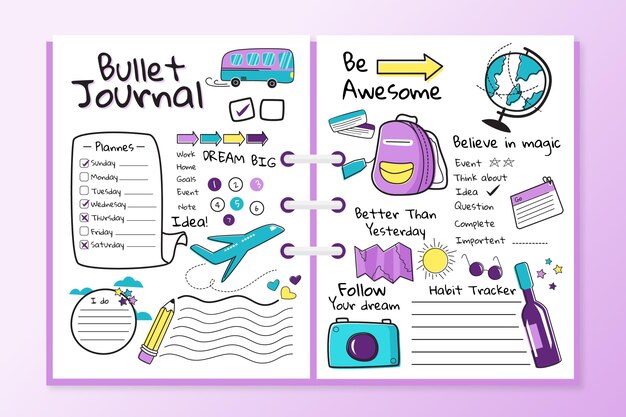 Bullet
Journal
Plannes
Sunday
Monday
Tuesday
Wednesay
Thursday
Friday
Saturday
Work
Home
Goals
Event
Note
DREAM BIG
1 2 3
4 5 6
Idea!
I do
Be
Awesome
Believe in magic
Event
Think about
Idea
Question
Complete
Importent
Go
Better Than
Yesterday
Follow
Your dream
Habit Tracker